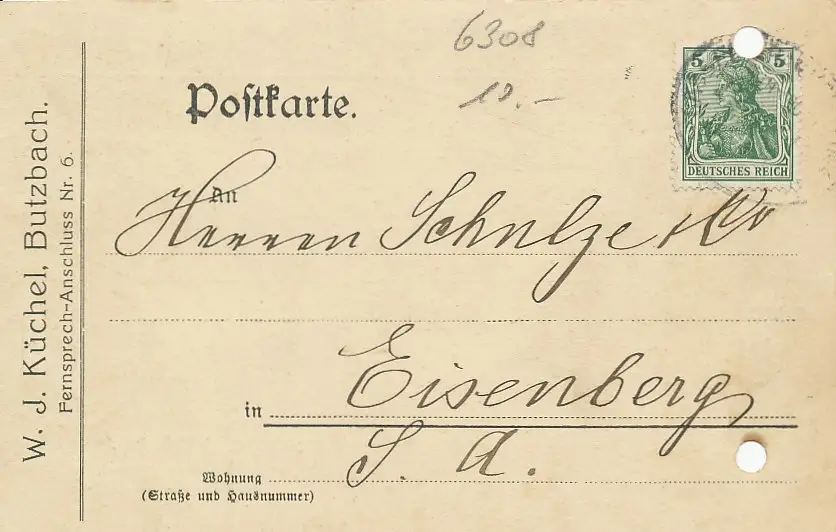 6308
10.-
5 5
DEUTSCHES REICH
Postkarte.
An
Herren Schulze & Co
in Eisenberg
S. A.
Wohnung
(Straße und Hausnummer)
W. J. Küchel, Butzbach.
Fernsprech-Anschluss Nr. 6.